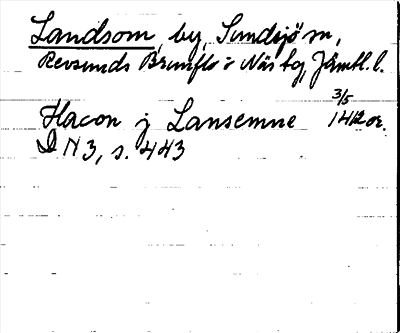 Landsom, by, Sundsjö sn,
Revsunds Brunflo o Näs tg, Jämtl. l.
Hacon j Lansemne 3/5 1412 or.
DN 3, s. 443